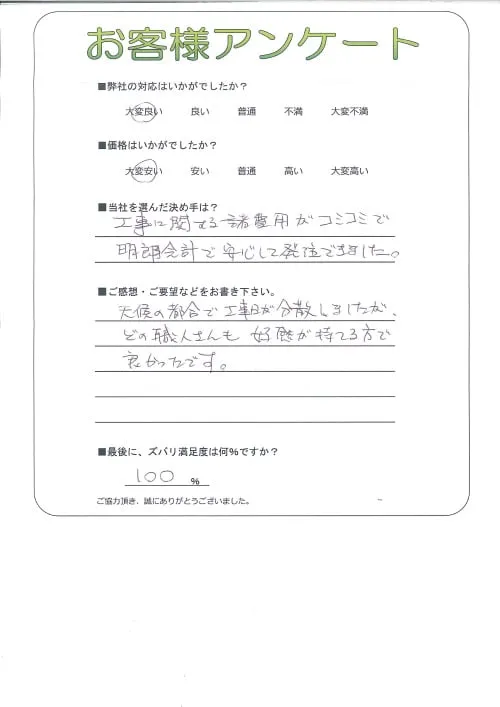 お客様アンケート
■弊社の対応はいかがでしたか？
大変良い 良い 普通 不満 大変不満
■価格はいかがでしたか？
大変安い 安い 普通 高い 大変高い
■当社を選んだ決め手は？
工事に関する諸費用がコミコミで
明朗会計で安心して発注できました。
■ご感想・ご要望などをお書き下さい。
天候の都合で工事日が分散しましたが、
どの職人さんも好感が持てる方で
良かったです。
■最後に、ズバリ満足度は何%ですか？
100 %
ご協力頂き、誠にありがとうございました。